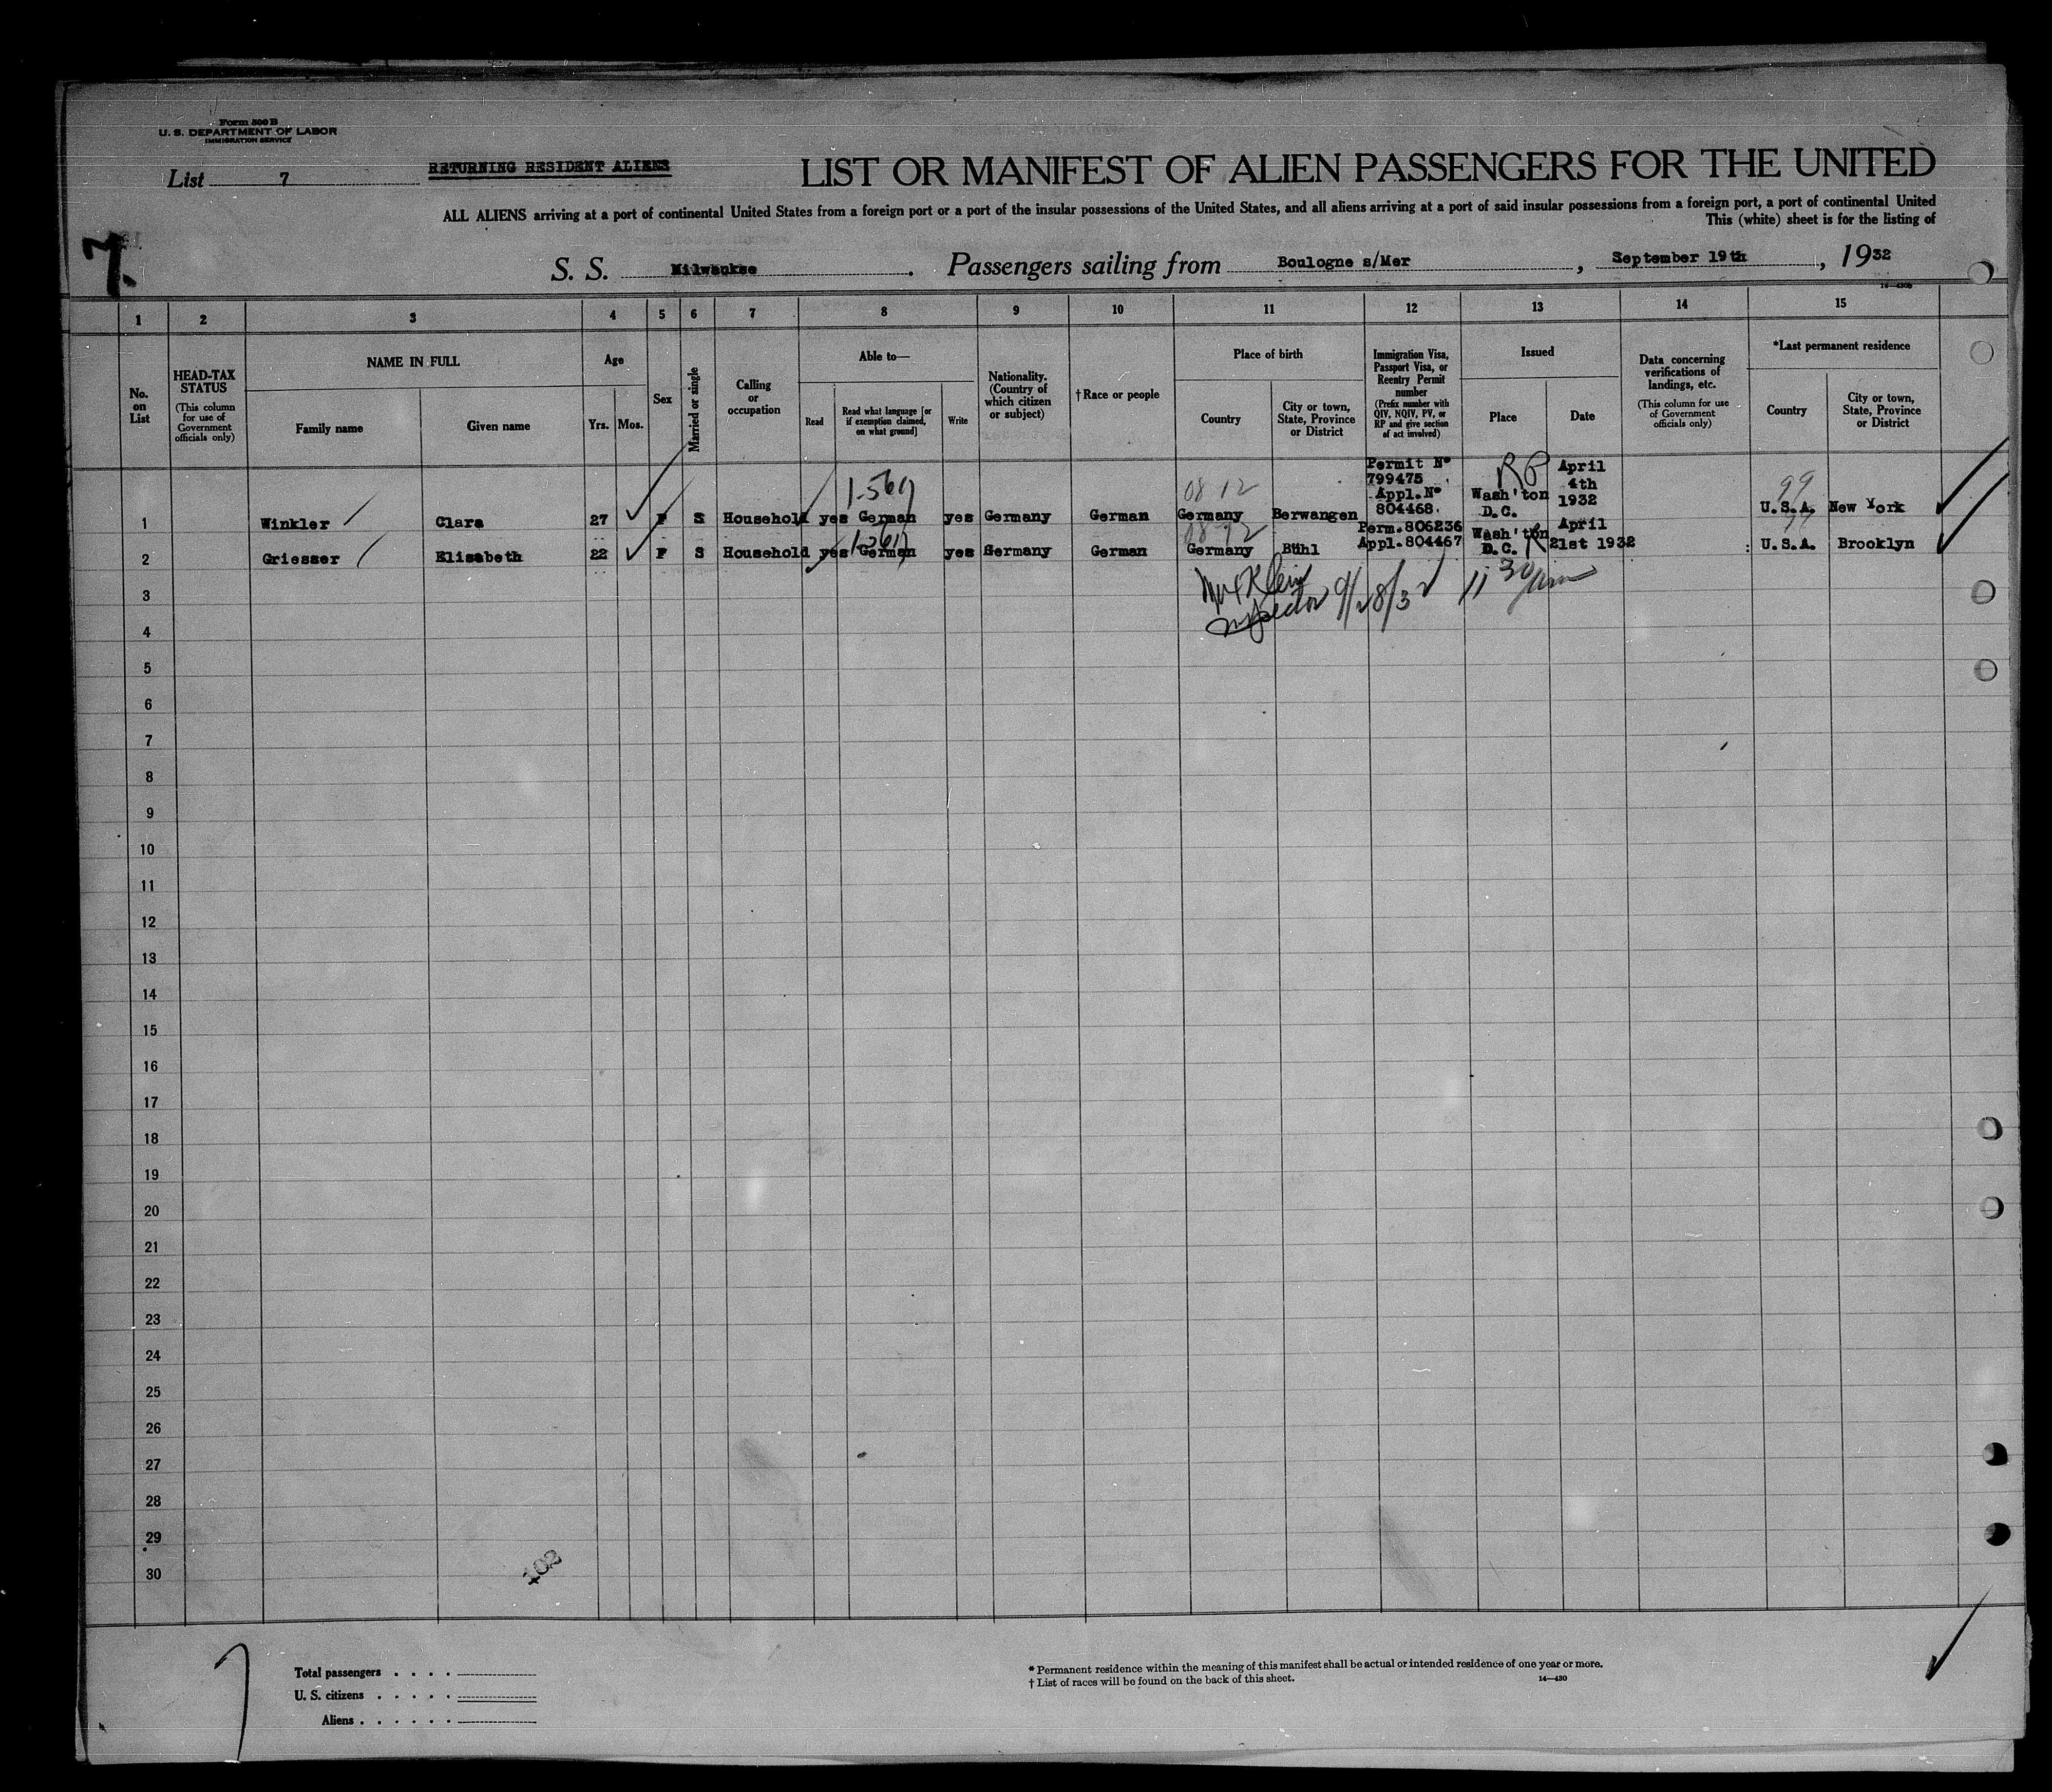 Form 500 B
U. S. DEPARTMENT OF LABOR
IMMIGRATION SERVICE
List 7
RETURNING RESIDENT ALIENS
LIST OR MANIFEST OF ALIEN PASSENGERS FOR THE UNITED
ALL ALIENS arriving at a port of continental United States from a foreign port or a port of the insular possessions of the United States, and all aliens arriving at a port of said insular possessions from a foreign port, a port of continental United
This (white) sheet is for the listing of
7.
S. S. Milwaukee . Passengers sailing from Boulogne s/Mer , September 19th , 1932
1 2 3 4 5 6 7 8 9 10 11 12 13 14 15
No. on List
HEAD-TAX STATUS
(This column for use of Government officials only)
NAME IN FULL
Family name
Given name
Age
Yrs. Mos.
Sex
Married or single
Calling or occupation
Able to—
Read
Read what language [or if exemption claimed, on what ground]
Write
Nationality. (Country of which citizen or subject)
† Race or people
Place of birth
Country
City or town, State, Province or District
Immigration Visa, Passport Visa, or Reentry Permit number
(Prefix number with QIV, NQIV, PV, or RP and give section of act involved)
Issued
Place
Date
Data concerning verifications of landings, etc.
(This column for use of Government officials only)
*Last permanent residence
Country
City or town, State, Province or District
1 Winkler Clara 27 F S Household yes German yes Germany German Germany Berwangen Permit No 799475 Appl.No 804468. Wash'ton D.C. RP April 4th 1932 99 U.S.A. New York
08 12
2 Griesser Elisabeth 22 F S Household yes German yes Germany German Germany Bühl Perm.806236 Appl.804467 Wash'ton D.C. April 21st 1932 U.S.A. Brooklyn
Klein
Inspector 9/28/32 11 30 am
3
4
5
6
7
8
9
10
11
12
13
14
15
16
17
18
19
20
21
22
23
24
25
26
27
28
29
30
102
7
Total passengers . . . .
U. S. citizens . . . . .
Aliens . . . . . .
* Permanent residence within the meaning of this manifest shall be actual or intended residence of one year or more.
† List of races will be found on the back of this sheet.
14—430